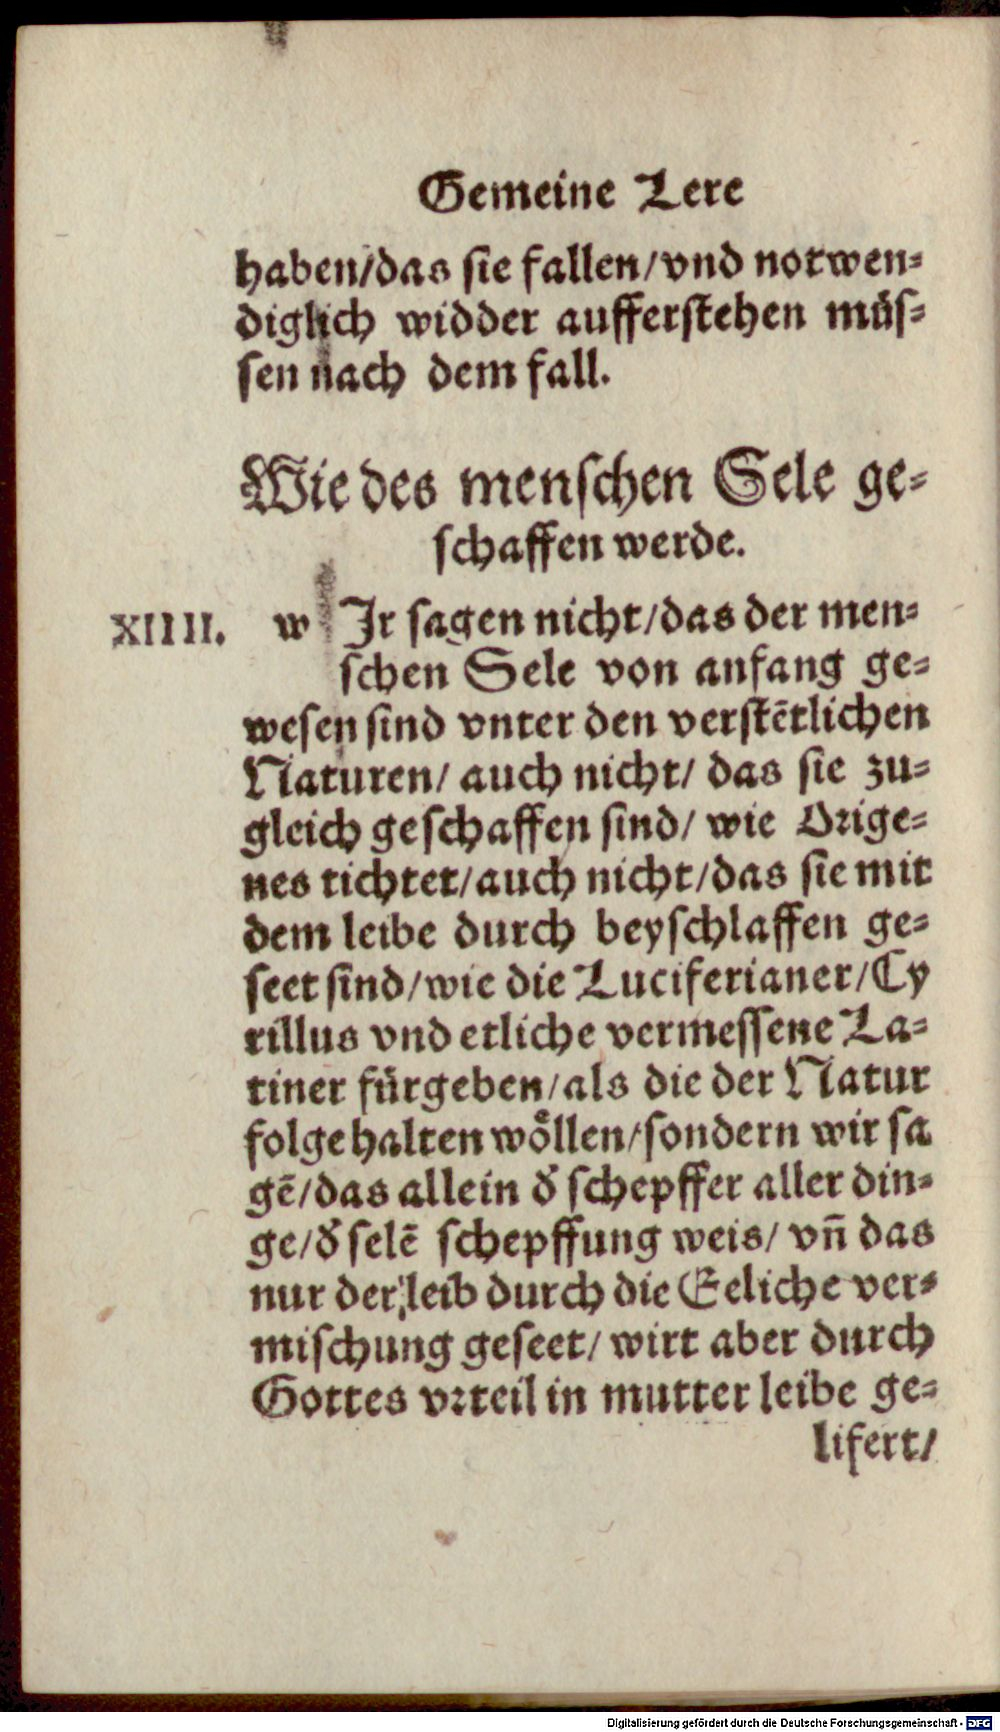 Gemeine Lere
haben/das sie fallen/vnd notwen⸗
diglich widder aufferstehen müs⸗
sen nach dem fall.
Wie des menschen Sele ge⸗
schaffen werde.
XIIII. w Jr sagen nicht/das der men⸗
schen Sele von anfang ge⸗
wesen sind vnter den verstētlichen
Naturen/ auch nicht/ das sie zu⸗
gleich geschaffen sind/ wie Orige⸗
nes tichtet/auch nicht/das sie mit
dem leibe durch beyschlaffen ge⸗
seet sind/wie die Luciferianer/Cy
rillus vnd etliche vermessene La⸗
tiner fürgeben/als die der Natur
folge halten wöllen/sondern wir sa
gē/das allein d̕ schepffer aller din⸗
ge/d̕ selē schepffung weis/ vn̄ das
nur der leib durch die Eeliche ver⸗
mischung geseet/ wirt aber durch
Gottes vrteil in mutter leibe ge⸗
lifert/
Digitalisierung gefördert durch die Deutsche Forschungsgemeinschaft - DFG